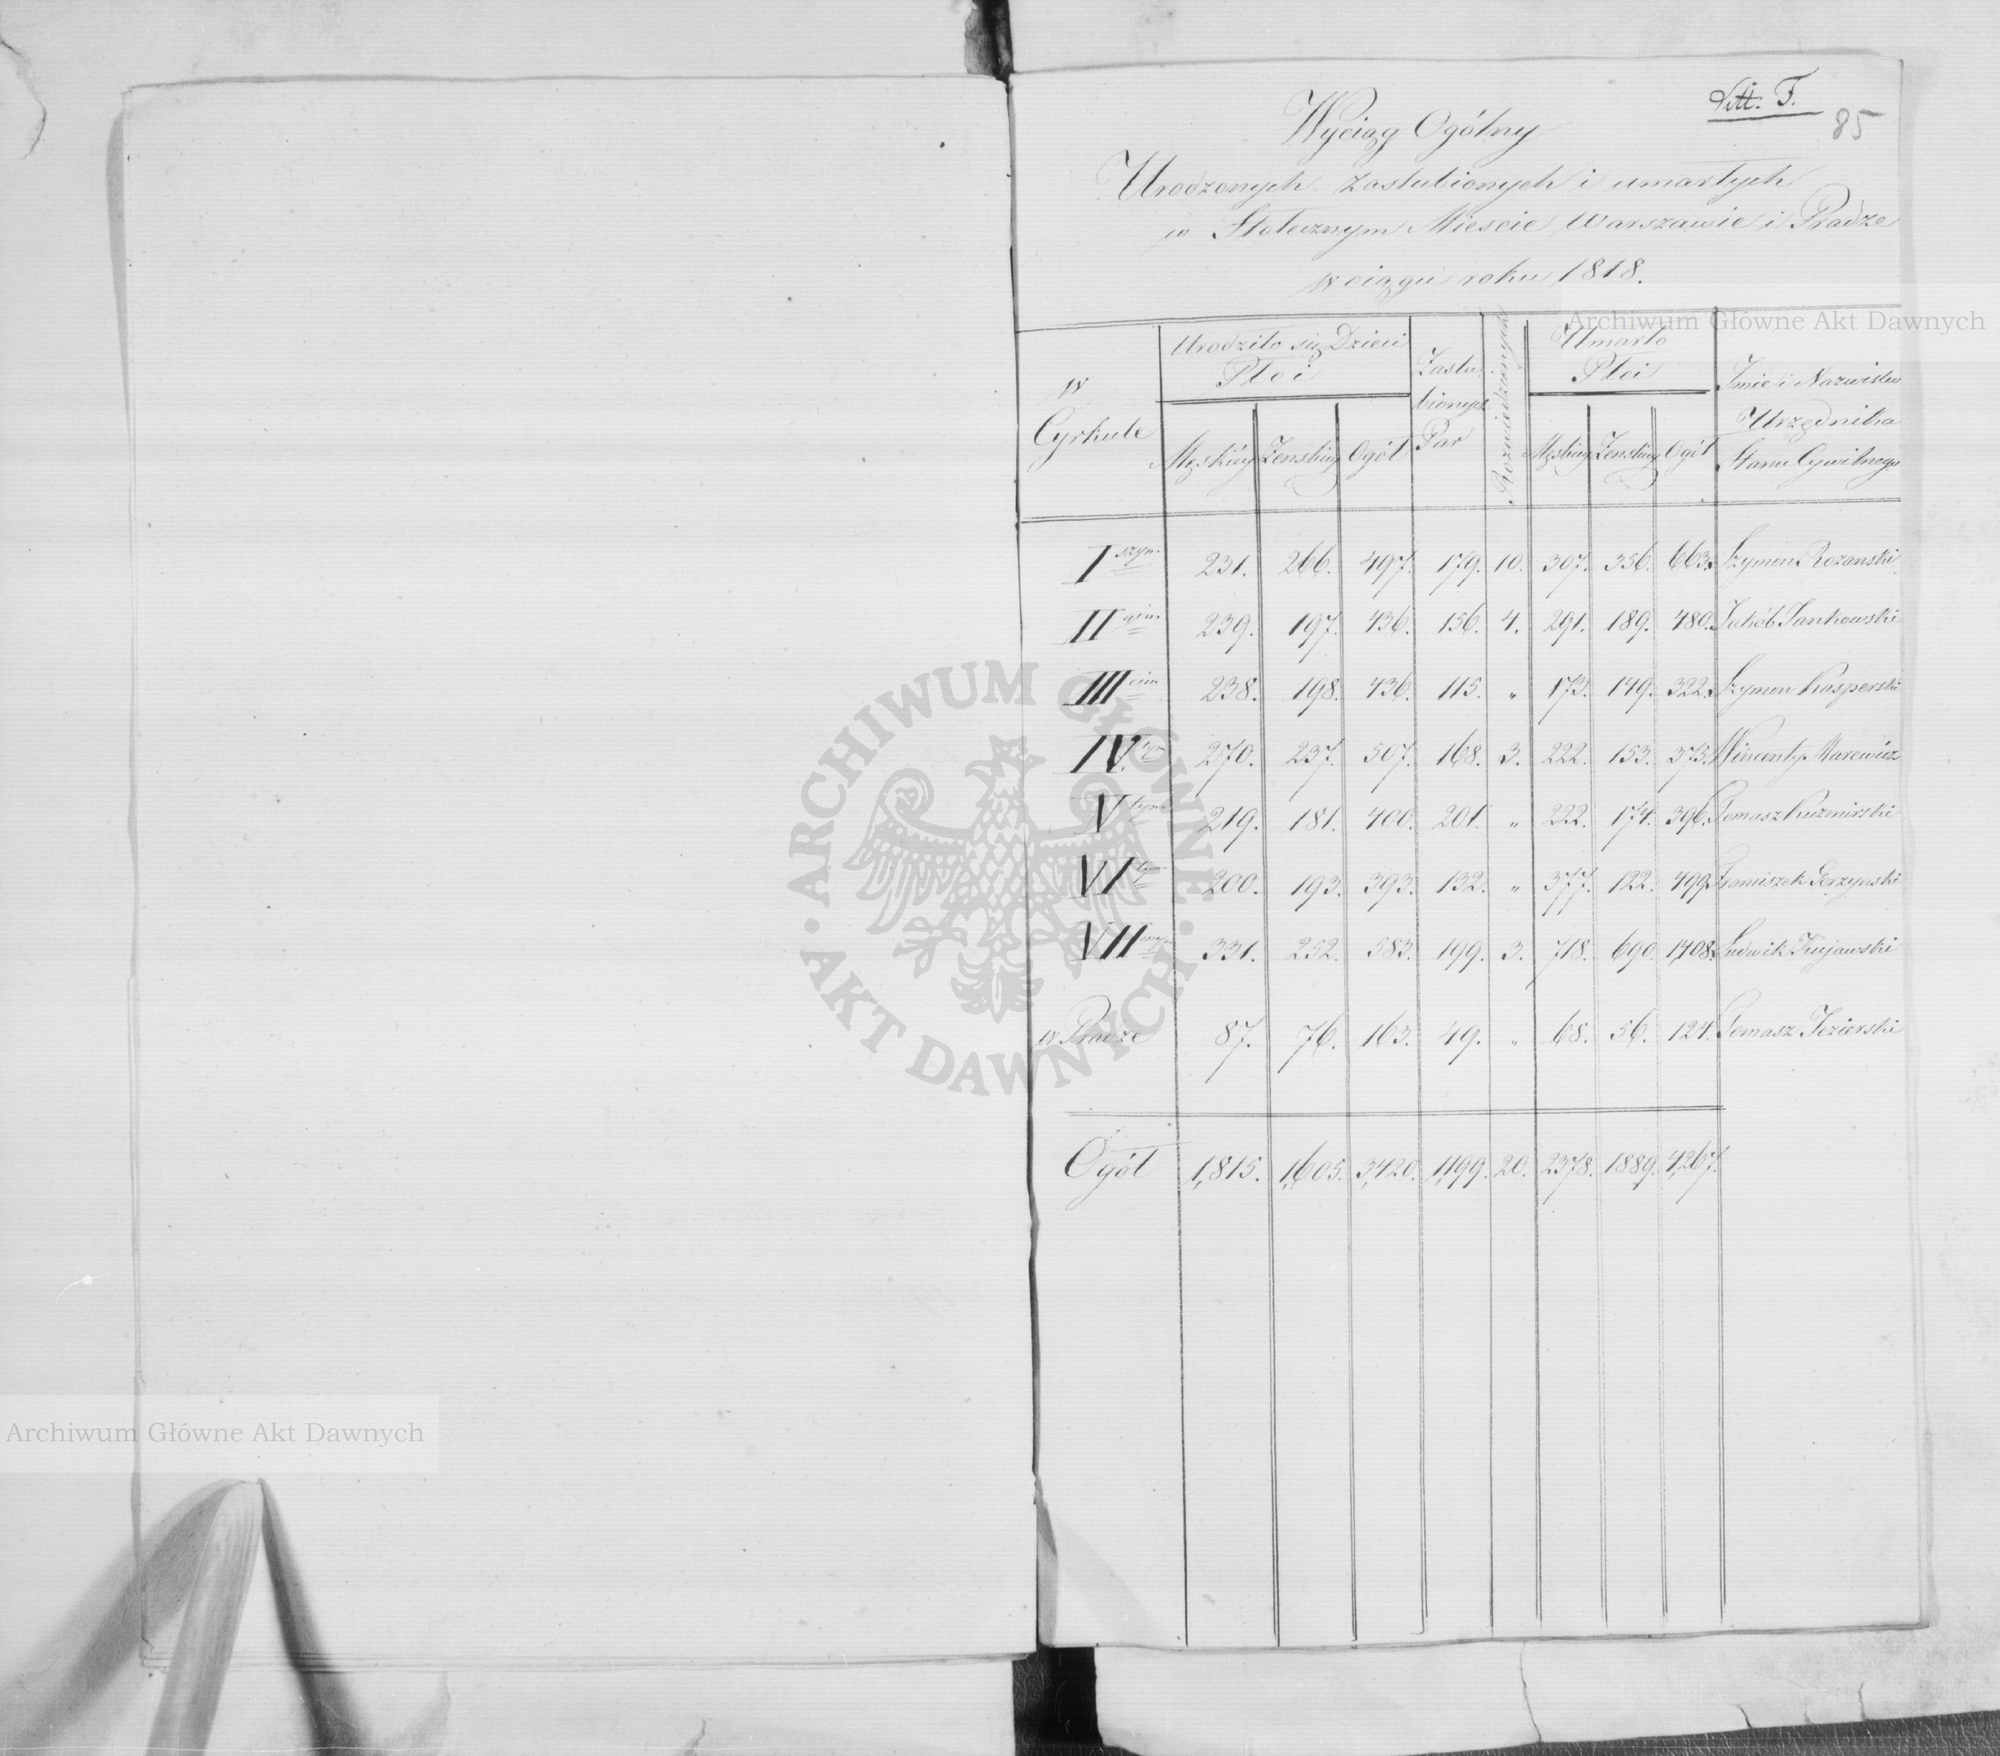 Litt. F.
85
Wyciąg Ogólny
Urodzonych Zaslubionych i umarłych
w Stołecznym Miescie Warszawie i Pradze
w ciągu roku 1818.
w Cyrkule
Urodziło się Dzieci
Płci
Męskiey Zenskiey Ogół
Zaslu
bionych
Par
Rozwiedzionych
Umarło
Płci
Męskiey Zenskiey Ogół
Imie i Nazwisko
Urzędnika
Stanu Cywilnego
I szym 231. 266. 497. 179. 10. 307. 356. 663. Szymon Rozanski
II gim 239. 197. 436. 156. 4. 291. 189. 480. Jakób Jankowski
III cim 238. 198. 436. 115. „ 173. 149. 322. Szymon Kasperski
IV. tym 270. 237. 507. 168. 3. 222. 153. 375. Wincenty Marewicz
V tym 219. 181. 400. 201. „ 222. 174. 396. Tomasz Kuzmirski
VI tym 200. 193. 393. 132. „ 377. 122. 499. Franciszek Gorzynski
VII 331. 252. 583. 199. 3. 718. 690. 1,408. Ludwik Kujawski
w Pradze 87. 76. 163. 49. „ 68. 56. 124. Tomasz Jezierski
Ogół 1,815. 1,605. 3,420. 1,199. 20. 2378. 1889. 4,267.
Archiwum Główne Akt Dawnych
ARCHIWUM GŁÓWNE · AKT DAWNYCH ·
Archiwum Główne Akt Dawnych